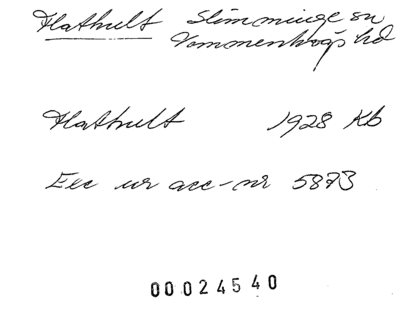 Flathult Slimminge sn
Vommenhögs hd
Flathult 1928 Kb
Exc ur acc-nr 5873
00024540